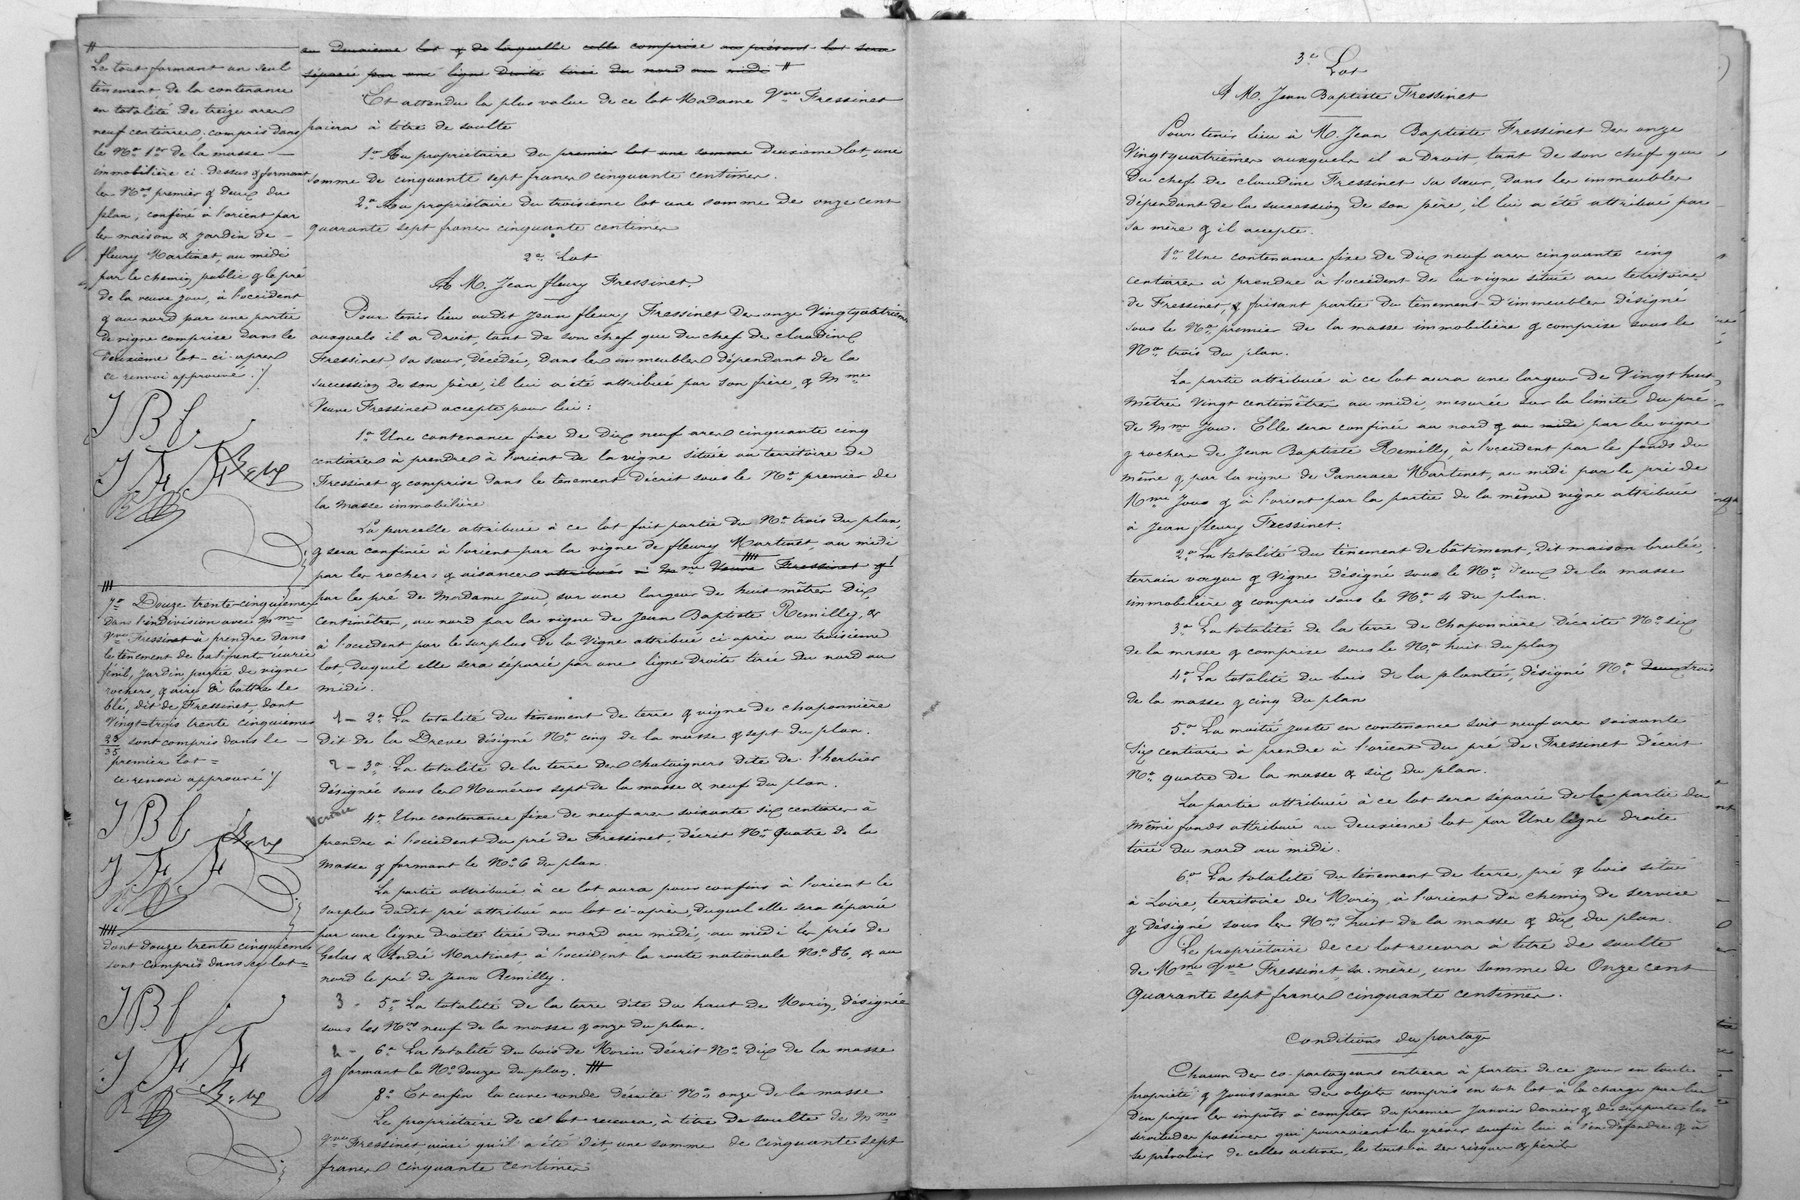 au deuxième lot & de laquelle celle comprise au présent lot sera
séparée par une ligne droite tirée du nord au midi #
Et attendu la plus value de ce lot Madame Vve Fressinet
paiera à titre de soulte
1o Au propriétaire du premier lot une somme deuxième lot, une
somme de cinquante sept francs cinquante centimes.
2o Au propriétaire du troisième lot une somme de onze cent
quarante sept francs cinquante centimes
2e Lot
A M. Jean fleury Fressinet.
Pour tenir lieu audit Jean fleury Fressinet des onze Vingtquatrièmes
auxquels il a Droit, tant de son chef que du chef de claudine
Fressinet, sa sœur, décédée, dans les immeubles dépendant de la
succession de son père, il lui a été attribué par son frère, & Mme
Veuve Fressinet accepte pour lui :
1o Une contenance fixe de Dix neuf ares cinquante cinq
centiares à prendre à l'orient de la vigne située au territoire de
Fressinet & comprise dans le tènement décrit sous le No premier de
la masse immobilière
La parcelle attribuée à ce lot fait partie du No trois du plan,
& sera confinée à l'orient par la vigne de fleury Martinet, au midi
par les rochers & aisances attribués à Mme Veuve Fressinet &
par le pré de Madame Jou, sur une largeur de huit mètres Dix
centimètres, au nord par la vigne de Jean Baptiste Remilly, &
à l'occident par le surplus de la Vigne attribuée ci après au troisième
lot, duquel elle sera séparée par une ligne Droite tirée du nord au
midi.
2 - 2o La totalité du tènement de terre & vigne de chaponnière
dit de la Dreve désigné No cinq de la masse & sept du plan.
2 - 3o La totalité de la terre des chataigners dite de l'herbier
désignée sous les Numéros sept de la masse & neuf du plan.
4o Une contenance fixe de neuf ares soixante six centiares à
prendre à l'occident du pré de Fressinet, décrit No Quatre de la
masse & formant le No 6 du plan.
La partie attribuée à ce lot aura pour confins à l'orient le
surplus dudit pré attribué au lot ci-après, duquel elle sera séparée
par une ligne Droite tirée du nord au midi, au midi les prés de
Gelas & André Martinet, à l'occident la route nationale No 86, & au
nord le pré de Jean Remilly.
3 - 5o La totalité de la terre dite du haut de Morin, désignée
sous les Nos neuf de la masse & onze du plan.
2 - 6o La totalité du bois de Morin décrit No Dix de la masse
& formant le No douze du plan. ###
8o Et enfin la cuve ronde décrite No onze de la masse
Le propriétaire de ce lot recevra, à titre de soulte de Mme
Vve Fressinet, ainsi qu'il a été dit, une somme de cinquante sept
francs cinquante centimes
#
Le tout formant un seul
tènement de la contenance
en totalité de treize ares
neuf centiares, compris dans
le No 1er de la masse
immobilière ci dessus & formant
les Nos premier & deux du
plan, confiné à l'orient par
les maison & jardin de
fleury Martinet, au midi
par le chemin public & le pré
de la veuve Jou, à l'occident
& au nord par une partie
de vigne comprise dans le
deuxième lot ci-après
ce renvoi approuvé ./
J B f
J F F
###
7o Douze trente-cinquièmes
dans l'indivision avec Mme
Vve Fressinet à prendre dans
le tènement de batiments écurie
fenil, jardin, partie de vigne
rochers, & aire à battre le
blé, dit de Fressinet, dont
Vingt-trois trente cinquièmes
23/35 sont compris dans le
premier Lot =
ce renvoi approuvé ./
J B f
J F F
####
dont douze trente cinquièmes
sont compris dans ce lot =
J B f
J F F
3e Lot
A M. Jean Baptiste Fressinet
Pour tenir lieu à M. Jean Baptiste Fressinet des onze
Vingtquatrièmes auxquels il a Droit, tant de son chef que
du chef de claudine Fressinet sa sœur, dans les immeubles
dépendant de la succession de son père, il lui a été attribué par
sa mère & il accepte.
1o Une contenance fixe de Dix neuf ares cinquante cinq
centiares à prendre à l'occident de la vigne située au territoire
de Fressinet, & faisant partie du tènement d'immeubles désigné
sous le No premier de la masse immobilière & comprise sous le
No trois du plan.
La partie attribuée à ce lot aura une largeur de Vingt huit
mètres Vingt centimètres au midi, mesurée sur la limite du pré
de Mme Jou. Elle sera confinée au nord & au midi par les vigne
& rochers de Jean Baptiste Remilly, à l'occident par le fonds du
même & par la vigne de Pancrace Martinet, au midi par le pré de
Mme Jou & à l'orient par la partie de la même vigne attribuée
à Jean fleury Fressinet.
2o La totalité du tènement de bâtiment, dit maison brulée,
terrain vague & Vigne désigné sous le No Deux de la masse
immobilière & compris sous le No 4 du plan.
3o La totalité de la terre de Chaponnière décrite No six
de la masse & comprise sous le No huit du plan
4o La totalité du bois de la plantée, désigné No deux trois
de la masse & cinq du plan
5o La moitié juste en contenance soit neuf ares soixante
six centiares à prendre à l'orient du pré de Fressinet décrit
No quatre de la masse & six du plan.
La partie attribuée à ce lot sera séparée de la partie du
même fonds attribuée au deuxième lot par Une ligne droite
tirée du nord au midi.
6o La totalité du tènement de terre, pré & bois situé
à Loire, territoire de Morin, à l'orient du chemin de service
& désigné sous les Nos huit de la masse & dix du plan.
Le propriétaire de ce lot recevra à titre de soulte
de Mme Vve Fressinet, sa mère, une somme de Onze cent
Quarante sept francs cinquante centimes.
Conditions du partage
Chacun des co-partageans entrera à partir de ce jour en toute
propriété & jouissance des objets compris en son lot à la charge par lui
d'en payer les impôts à compter du premier Janvier dernier & de supporter les
servitudes passives qui pourraient les grever sauf à lui à s'en défendre & à
se prévaloir de celles actives, le tout à ses risques & périls